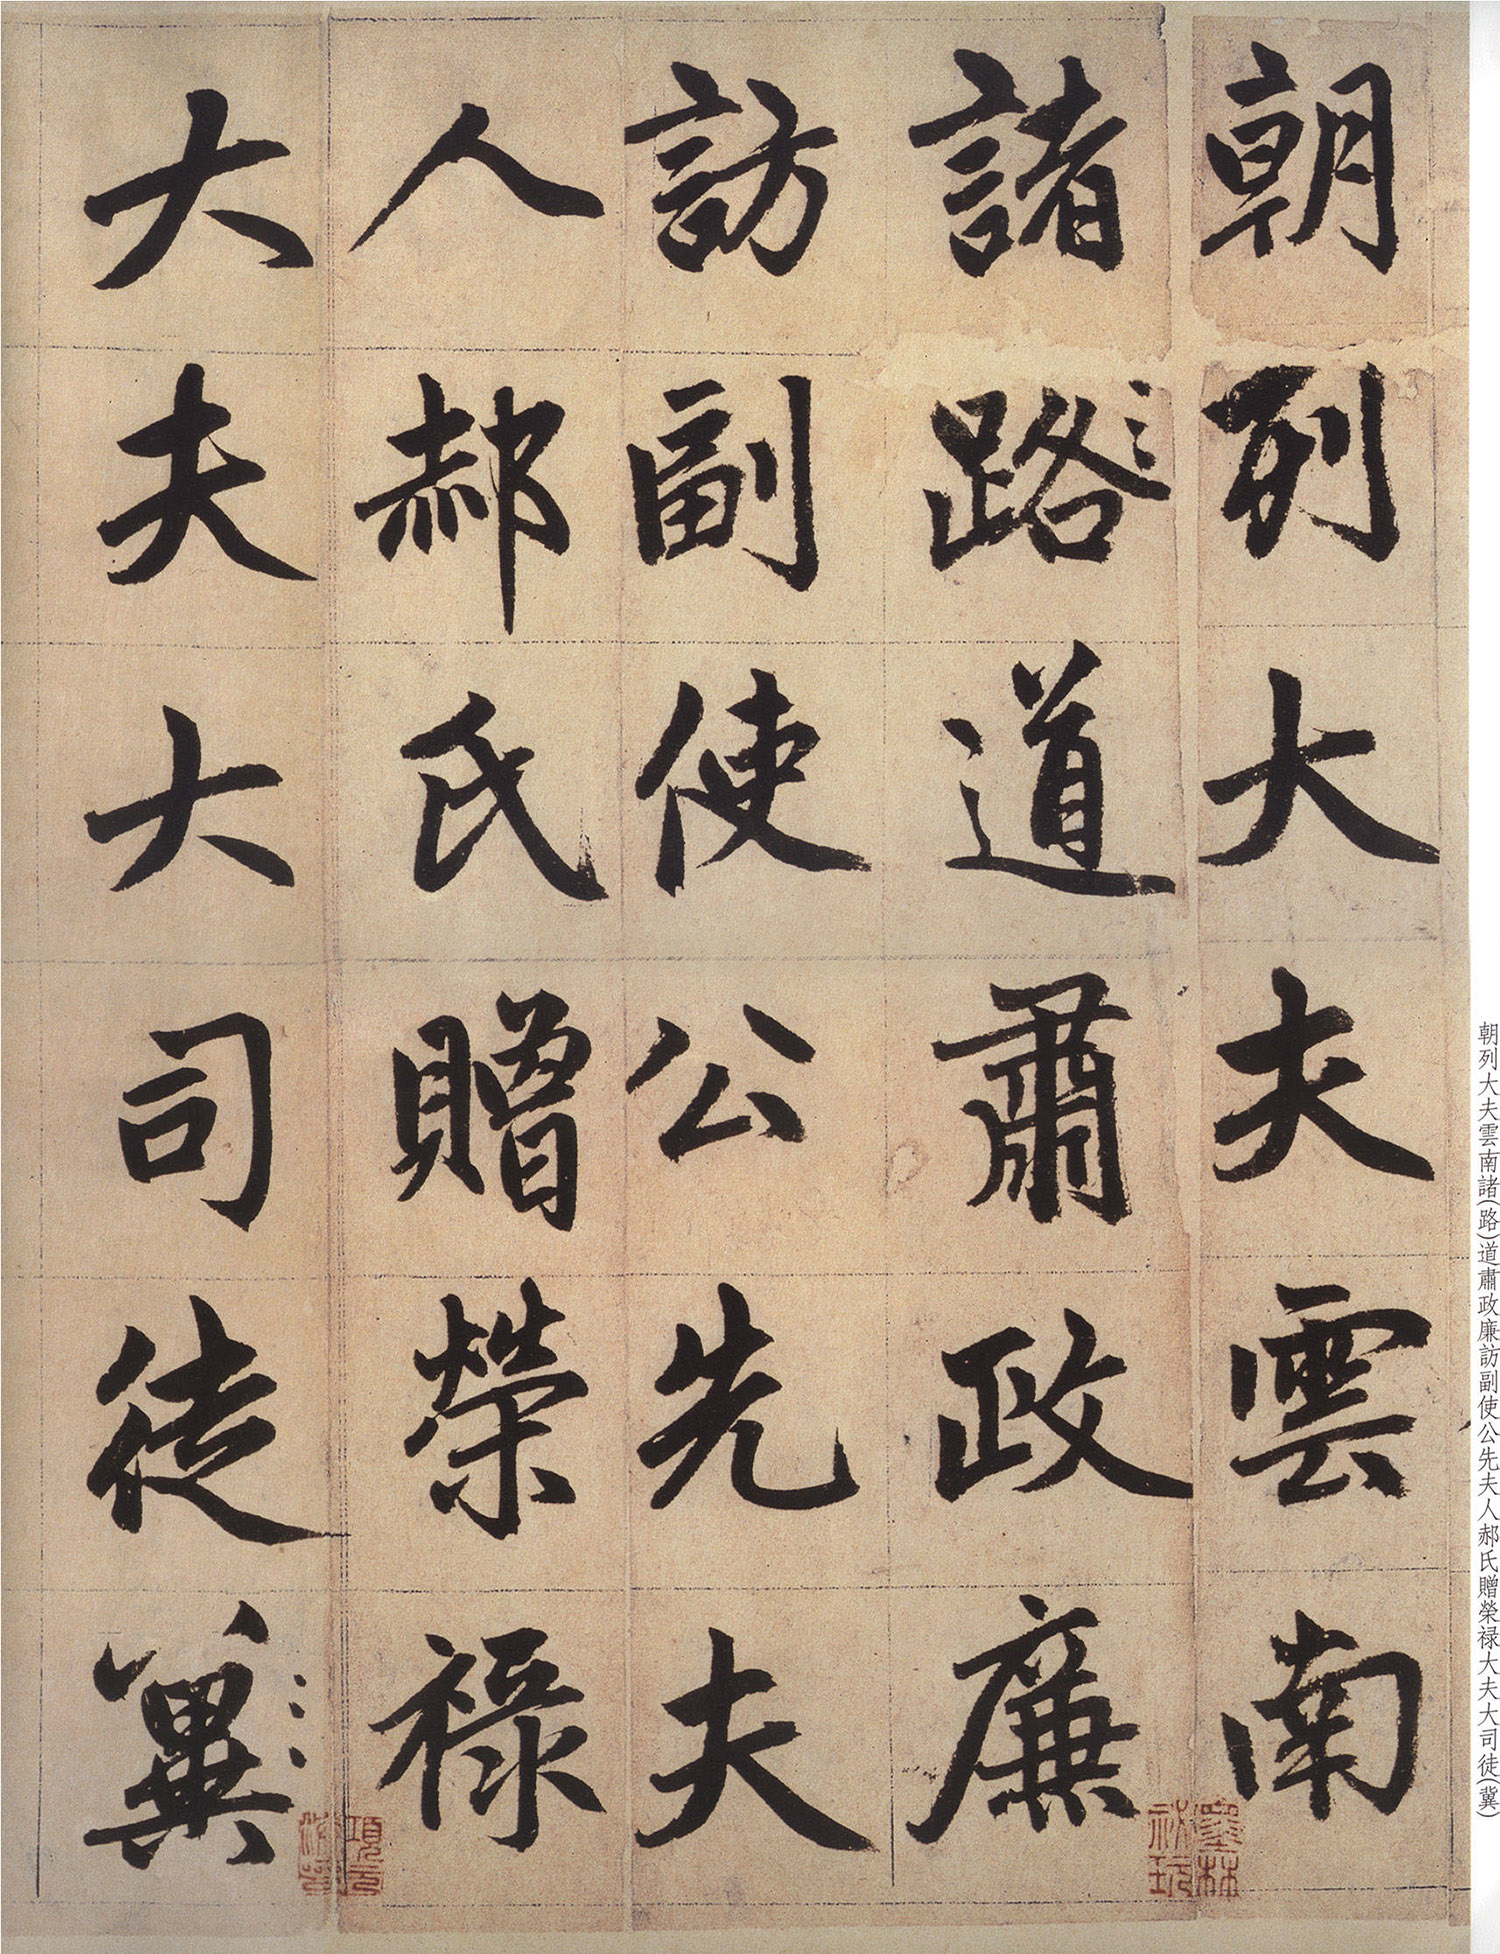 朝列大夫雲南
諸路道肅政廉
訪副使公先夫
人郝氏贈榮禄
大夫大司徒冀
朝列大夫雲南諸(路)道肅政廉訪副使公先夫人郝氏贈榮禄大夫大司徒(冀)
墨林
祕玩
項元
汴印